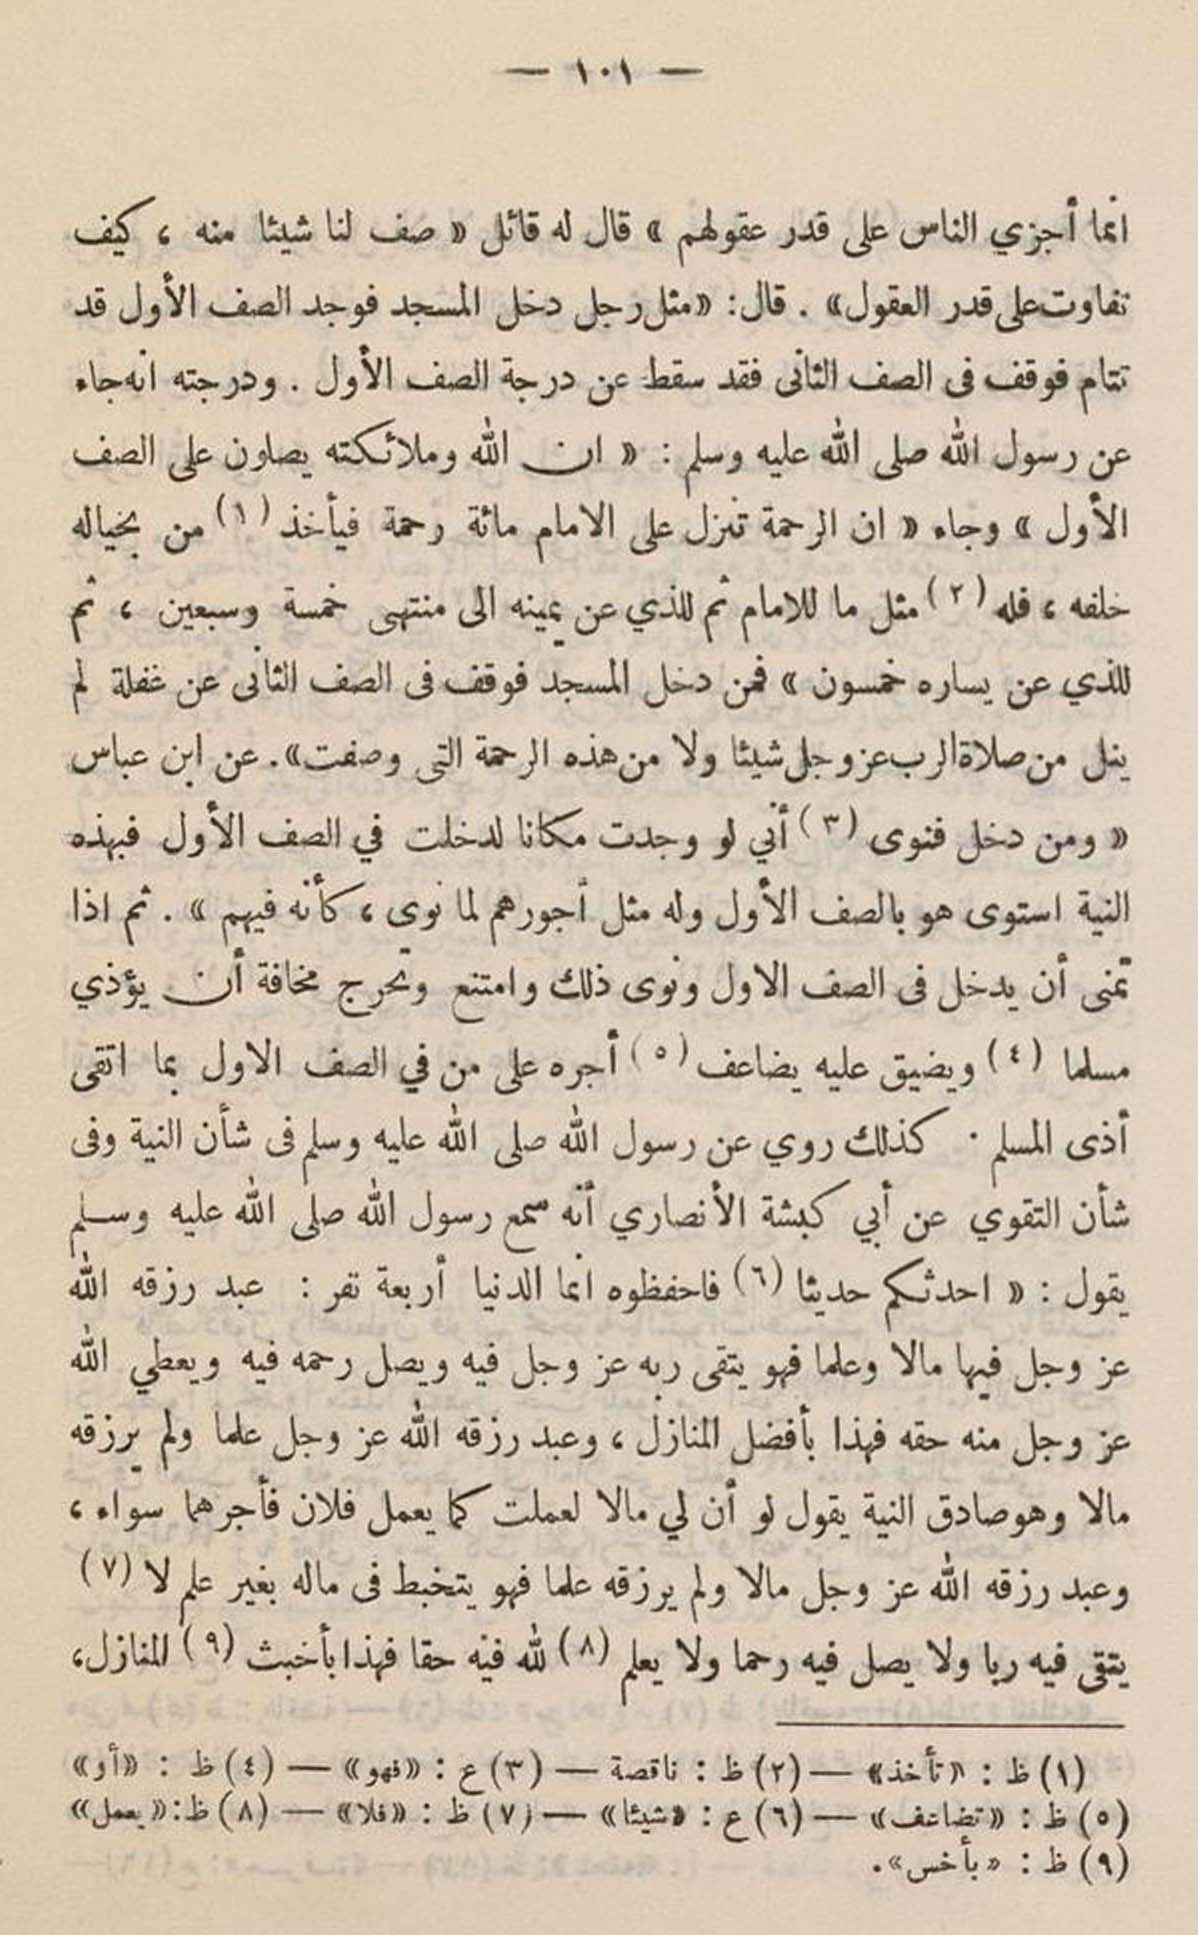 — ١٠١ —
انما أجزي الناس على قدر عقولهم » قال له قائل « صف لنا شيئا منه ، كيف
تفاوت على قدر العقول» . قال: «مثل رجل دخل المسجد فوجد الصف الأول قد
تتام فوقف فى الصف الثانى فقد سقط عن درجة الصف الأول . ودرجته انه جاء
عن رسول الله صلى الله عليه وسلم : « ان الله وملائكته يصلون على الصف
الأول » وجاء « ان الرحمة تنزل على الامام مائة رحمة فيأخذ (١) من بخياله
خلفه ، فله (٢) مثل ما للامام ثم للذي عن يمينه الى منتهى خمسة وسبعين ، ثم
للذي عن يساره خمسون » فمن دخل المسجد فوقف فى الصف الثانى عن غفلة لم
ينل من صلاة الرب عز وجل شيئا ولا من هذه الرحمة التى وصفت». عن ابن عباس
« ومن دخل فنوى (٣) أني لو وجدت مكانا لدخلت في الصف الأول فبهذه
النية استوى هو بالصف الأول وله مثل أجورهم لما نوى ، كأنه فيهم » . ثم اذا
تمنى أن يدخل فى الصف الاول ونوى ذلك وامتنع وتحرج مخافة أن يؤذي
مسلما (٤) ويضيق عليه يضاعف (٥) أجره على من في الصف الاول بما اتقى
أذى المسلم . كذلك روي عن رسول الله صلى الله عليه وسلم فى شأن النية وفى
شأن التقوي عن أبي كبشة الأنصاري أنه سمع رسول الله صلى الله عليه وسلم
يقول : « احدثكم حديثا (٦) فاحفظوه انما الدنيا أربعة نفر : عبد رزقه الله
عز وجل فيها مالا وعلما فهو يتقى ربه عز وجل فيه ويصل رحمه فيه ويعطي الله
عز وجل منه حقه فهذا بأفضل المنازل ، وعبد رزقه الله عز وجل علما ولم يرزقه
مالا وهو صادق النية يقول لو أن لي مالا لعملت كما يعمل فلان فأجرهما سواء ،
وعبد رزقه الله عز وجل مالا ولم يرزقه علما فهو يتخبط فى ماله بغير علم لا (٧)
يتقى فيه ربا ولا يصل فيه رحما ولا يعلم (٨) لله فيه حقا فهذا بأخبث (٩) المنازل،
(١) ظ : «تأخذ» — (٢) ظ : ناقصة — (٣) ع : «فهو» — (٤) ظ : «أو»
(٥) ظ : «تضاعف» — (٦) ع : «شيئا» — (٧) ظ : «فلا» — (٨) ظ: «يعمل»
(٩) ظ : «بأخس».